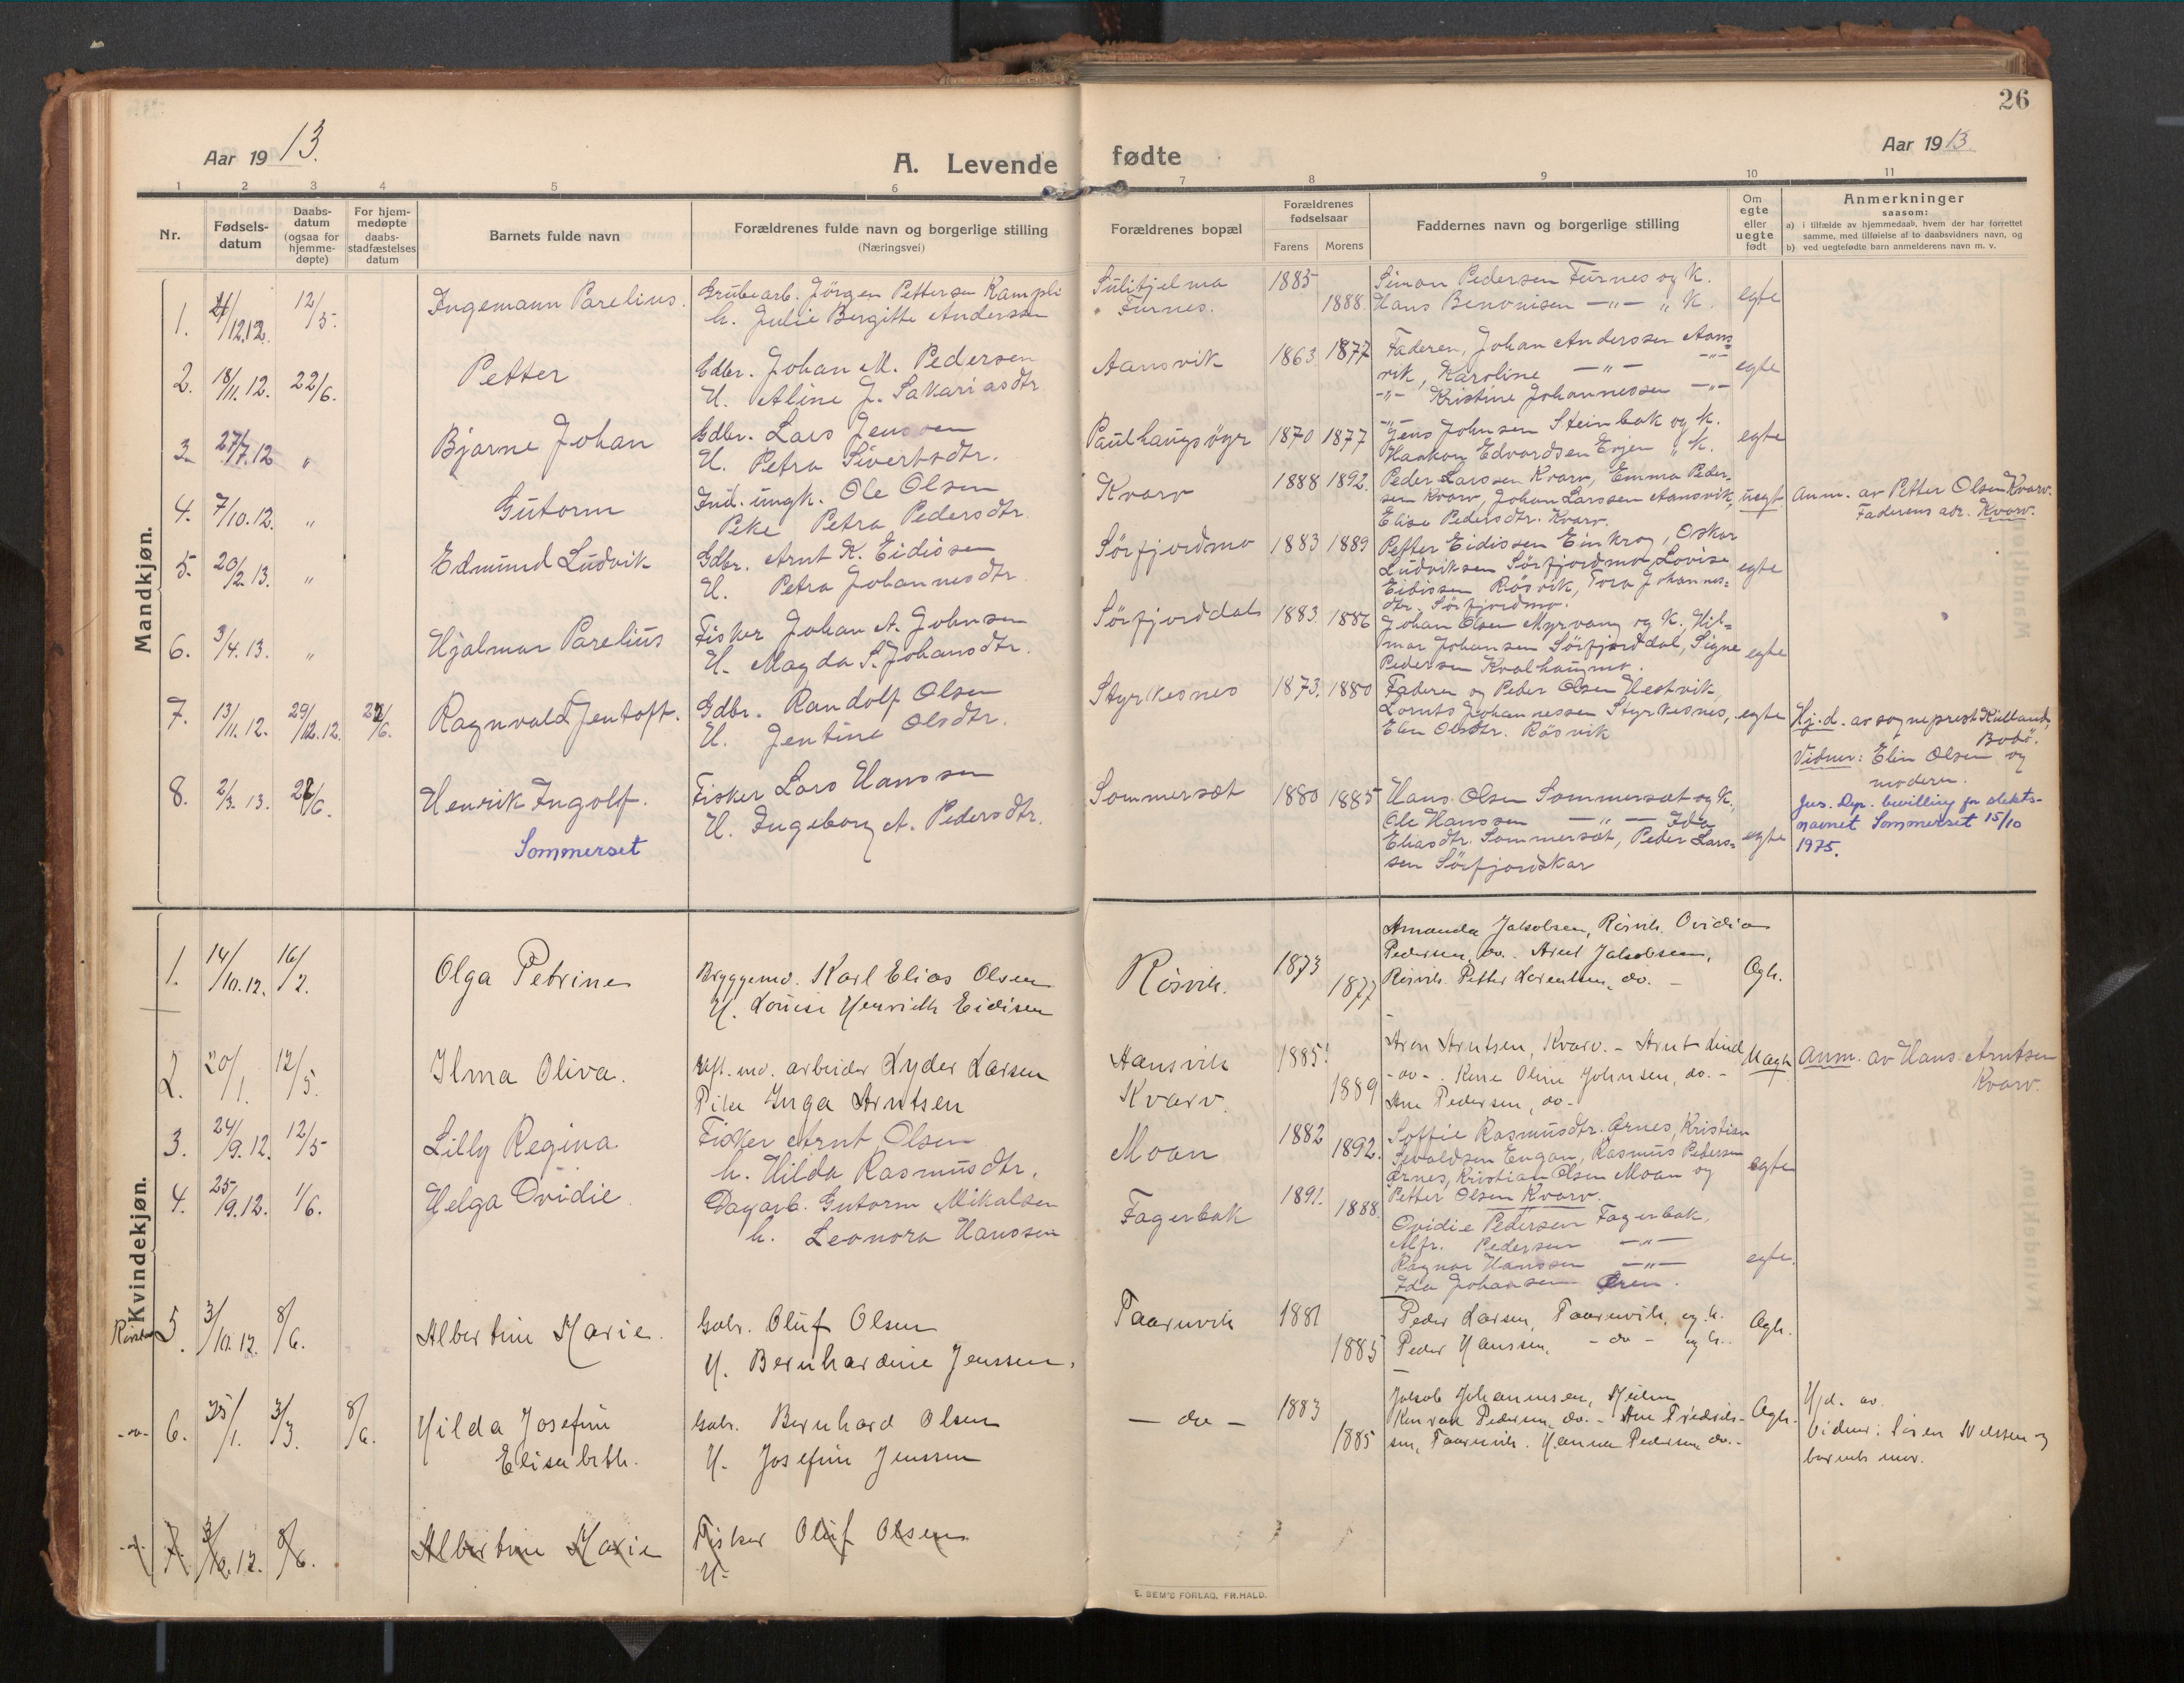 26
Aar 1913.
A. Levende fødte
Aar 1913.
1 2 3 4 5 6 7 8 9 10 11
Nr.
Fødsels-datum
Daabs-datum (ogsaa for hjemme-døpte)
For hjem-medøpte daabs-stadfæstelses datum
Barnets fulde navn
Forældrenes fulde navn og borgerlige stilling
(Næringsvei)
Forældrenes bopæl
Forældrenes fødselsaar
Farens Morens
Faddernes navn og borgerlige stilling
Om egte eller uegte født
Anmerkninger
saasom:
a) i tilfælde av hjemmedaab, hvem der har forrettet
samme, med tilføielse af to daabsvidners navn, og
b) ved uegtefødte barn anmelderens navn m. v.
Mandkjøn.
1. /12.12. 12/5. Ingemann Parelius. Grubearb. Jörgen Pettersen Rampli
h. Julie Bergitte Anderssen
Sulitjelma
Furnes.
1885 1888.
Simon Pedersen Furnes og K.
Hans Benonisen —„— „ K.
egte
2. 18/11.12. 22/6. Petter Gdbr. Johan M. Pedersen
H. Aline J. Sakariasdtr
Aansvik 1863 1877
Faderen, Johan Anderssen Aans
vik, Karoline —„— —„—
—„— Kristine Johannessen —„—
egte
3. 27/7.12 „ Bjarne Johan Gdbr. Lars Jenssen
H. Petra Sivertsdtr.
Paulhaugsöyr 1870 1877
Jens Johnsen Steinbak og K.
Haakon Edvardsen Evjen „ K.
egte
4. 7/10.12. „ Gutorm Ind. ungk. Ole Olsen
Pike Petra Pedersdtr.
Kvarv 1888 1892.
Peder Larssen Kvarv, Emma Peder-
sen Kvarv, Johan Larssen Aansvik,
Elise Pedersdtr. Kvarv.
uegt
Anm. av Petter Olsen Kvarv.
Faderens adr. Kvarv.
5. 20/2.13. „ Edmund Ludvik Gdbr. Arnt K. Eidissen
H. Petra Johannesdtr.
Sörfjordmo 1883 1889
Petter Eidissen Einkrog, Oskar
Ludviksen Sörfjordmo, Lovise
Eidissen Rösvik, Tora Johannes=
dtr. Sörfjordmo.
egte
6. 3/4.13. „ Hjalmar Parelius Fisker Johan A. Johnsen
H. Magda S. Johansdtr.
Sörfjorddal 1883. 1886
Johan Olsen Myrvang og K., Hil=
mar Johansen Sörfjorddal, Signe
Pedersen Kvalhaugmo.
egte
7. 13/11.12. 29/12.12. 22/6. Ragnvald Jentoft. Gdbr. Randolf Olsen
H. Jentine Olsdtr.
Styrkesnes 1873. 1880
Faderen og Peder Olsen Hestvik,
Lornts Johannessen Styrkesnes,
Elen Olsdtr. Rösvik
egte
Hj. d. av sogneprest Kulland,
Bodö.
Vidner: Elin Olsen og
modern.
8. 2/3.13. 22/6. Henrik Ingolf. Fisker Lars Hanssen
H. Ingeborg A. Pedersdtr.
Sommerset
Sommersæt 1880 1885
Hans Olsen Sommersæt og K.,
Ole Hanssen —„— Ida
Eliasdtr. Sommersæt, Peder Lars=
sen Sörfjordskar
egte
Jus. Dep. bevilling for slekts-
navnet Sommerset 15/10
1975.
Kvindekjøn.
1. 14/10.12. 16/2. Olga Petrine Bryggemd. Karl Elias Olsen
H. Louise Henrikke Eidisen
Rösvik. 1873 1877
Amanda Jakobsen, Rösvik. Ovidia
Pedersen, do. Arnt Jakobsen,
Rösvik. Petter Lorentsen, do.
Ægte.
2. 20/1. 12/5. Ilma Oliva. arbeider Lyder Larsen
Pike Inga Arntsen
Aansvik
Kvarv.
1885. 1889
Aron Arntsen, Kvarv. - Arnt Lind
-do-. Oline Johnsen, do. -
Ane Pedersen, do-
Uægte
Anm. av Hans Arntsen
Kvarv.
3. 24/9.12. 12/5 Lilly Regina. Fisker Arnt Olsen
h. Hilda Rasmusdtr.
Moan 1882 1892.
Soffie Rasmusdtr. Ørnes, Kristian
Sevaldsen Engan, Rasmus Pedersen
Ørnes, Kristian Olsen Moan og
Petter Olsen Kvarv.
egte
4. 25/9.12. 1/6. Helga Ovidie Dagarb. Gutorm Mikalsen
h. Leonora Hanssen
Fagerbak 1891. 1888.
Ovidie Pedersen Fagerbak,
Alfr. Pedersen —„—
Ragnar Hanssen —„—
Ida Johansen Øren.
egte.
5. 3/10.12. 8/6. Albertine Marie. Gabr. Oluf Olsen
H. Bernhardine Jenssen.
Taarnvik 1881 1885
Peder Larsen, Taarnvik, og h.
Peder Hanssen, - do - og h.
Ægte.
-do- 6. 25/1. 3/3. 8/6. Hilda Josefine
Elisabeth.
Gabr. Bernhard Olsen
H. Josefine Jenssen
- do - 1883 1885
Jakob Johannesen,
Konrad Pedersen, do. - Ane Fredrik-
sen, Taarnvik. Hanna Pedersen, do.-
Ægte.
Hjd. av
Vidner: Sören Nilssen og
barnets mor.
7. 3/10.12. 8/6. Albertine Marie Fisker Oluf Olsen
H.
E. SEM'S FORLAG, FR.HALD.